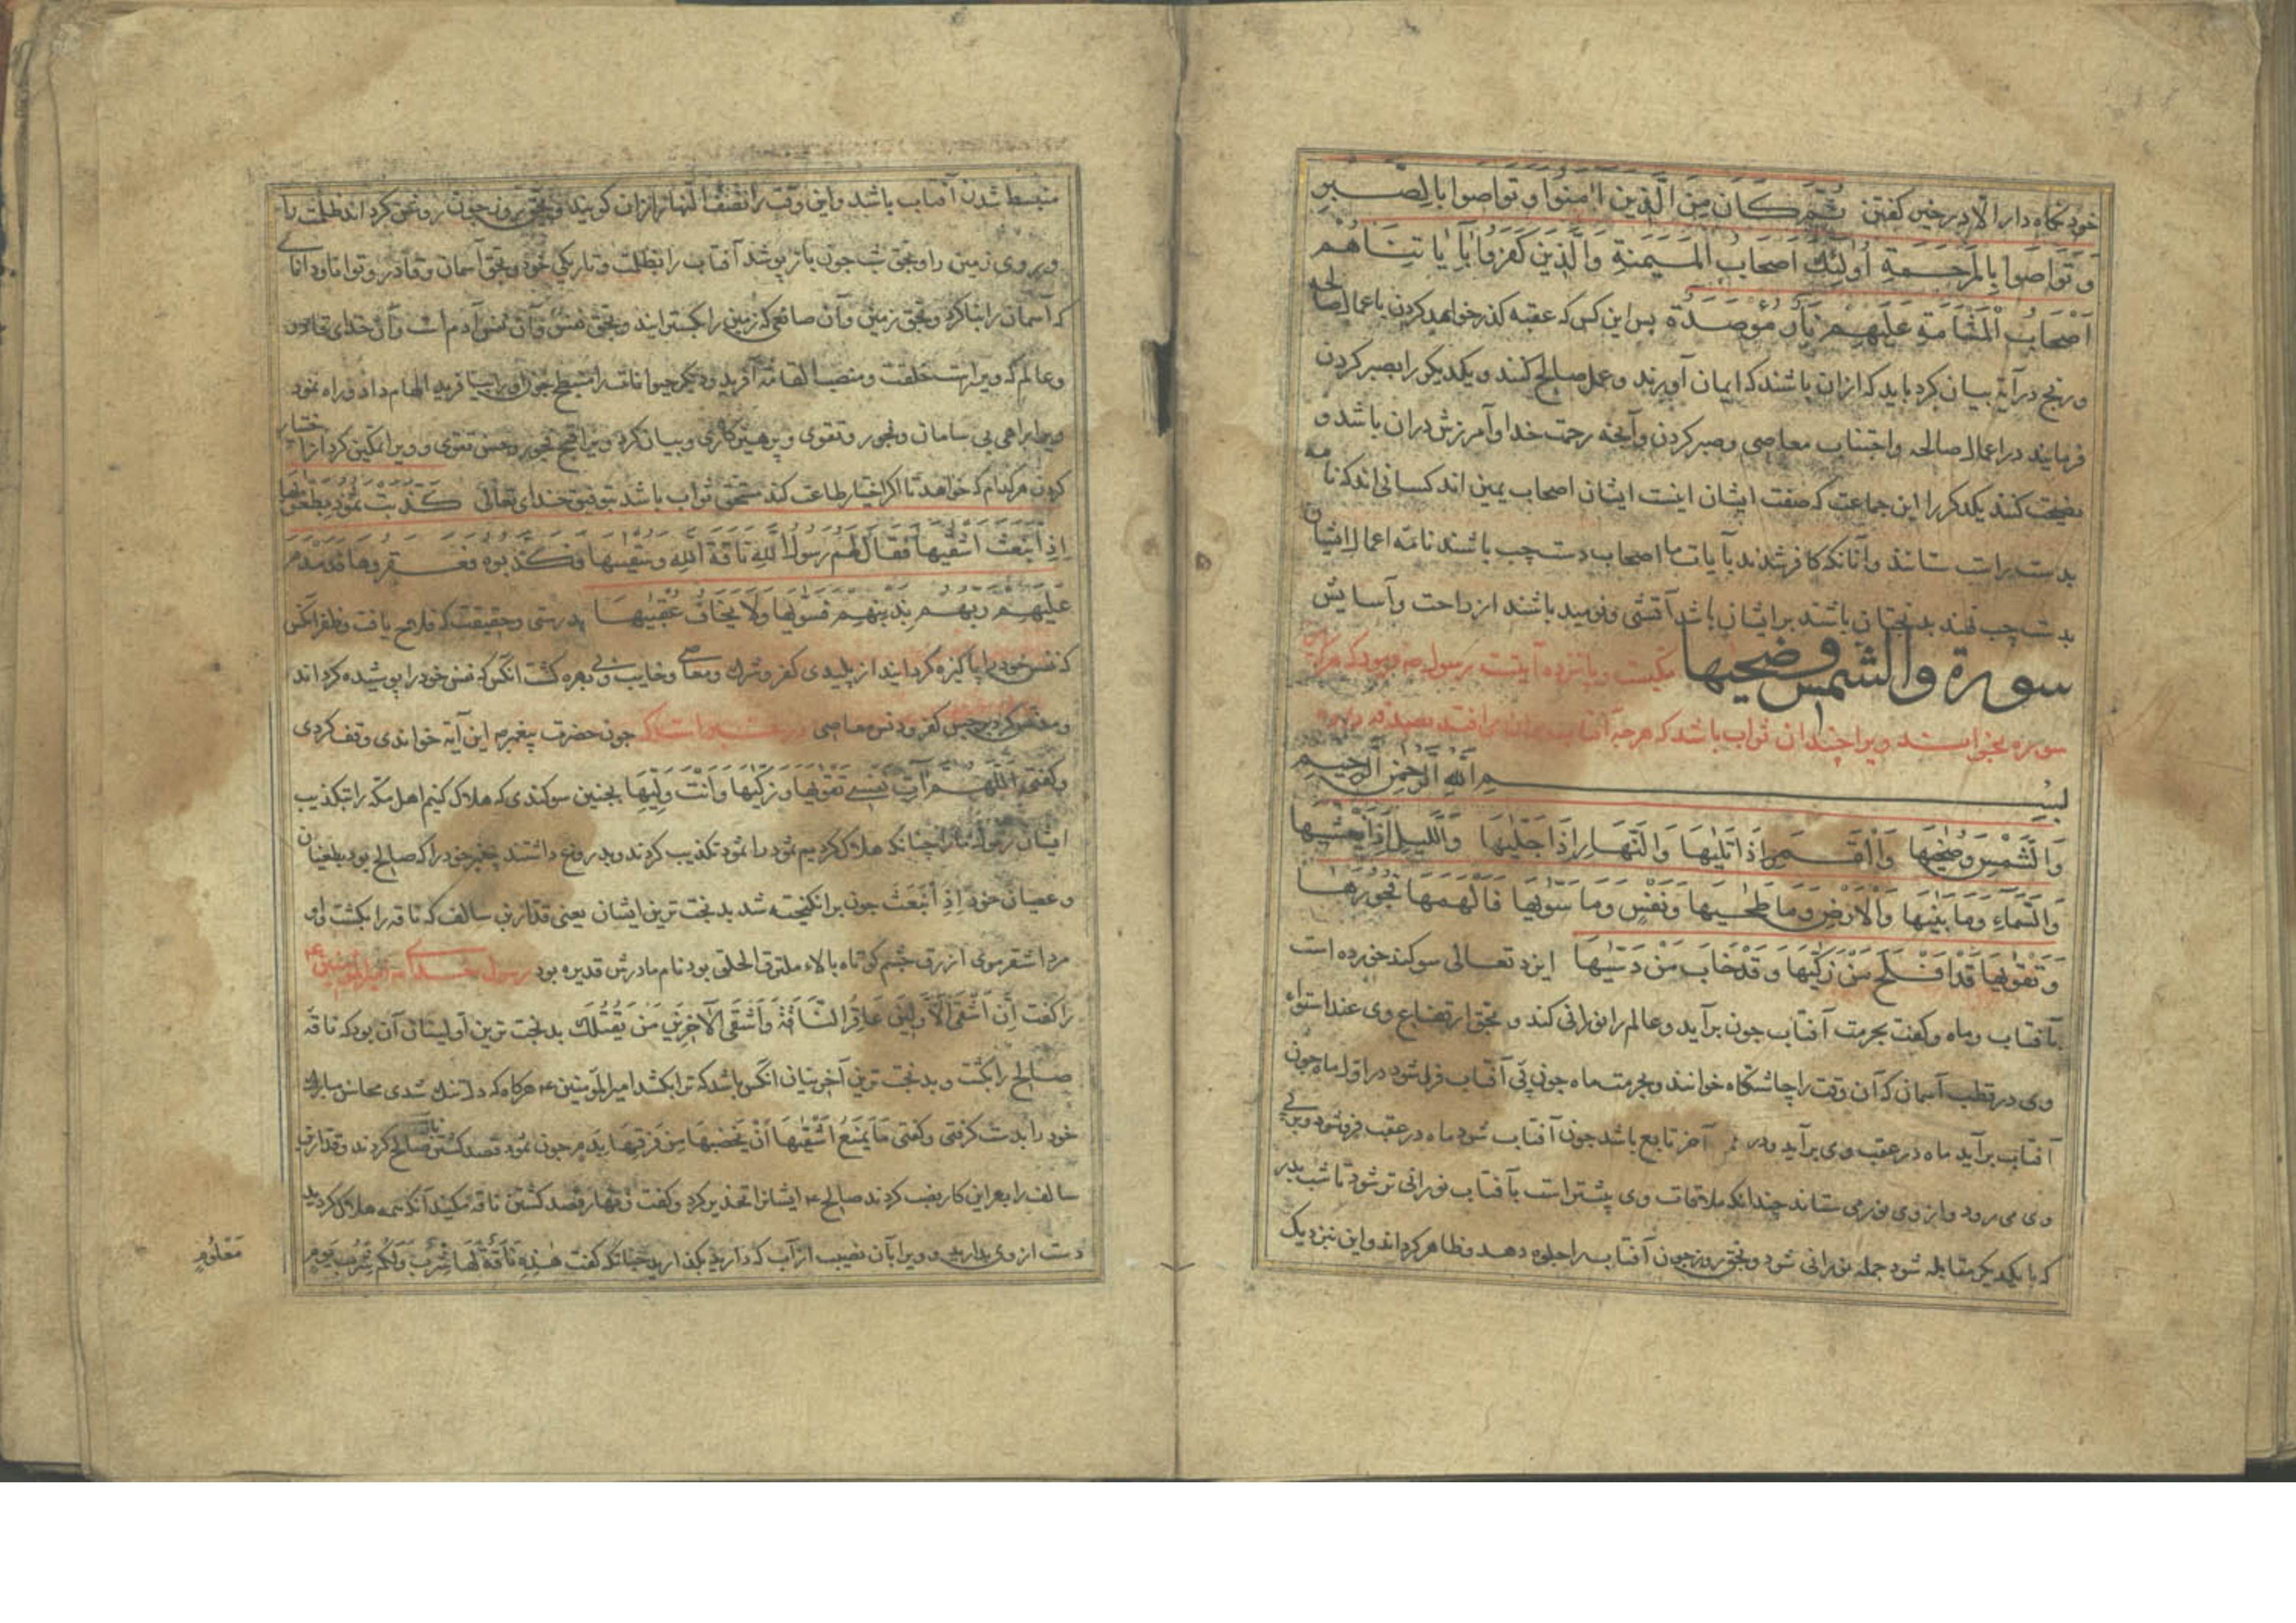 خود نگاه دار الا در خیر گفتن ثُمَّ كَانَ مِنَ الَّذِينَ اٰمَنُوا وَتَوَاصَوا بِالصَّبْرِ
وَتَوَاصَوا بِالْمَرْحَمَةِ اُولٰئِكَ اَصْحَابُ الْمَيْمَنَةِ وَالَّذِينَ كَفَرُوا بِاٰيَاتِنَا هُمْ
اَصْحَابُ الْمَشْأَمَةِ عَلَيْهِمْ نَارٌ مُؤْصَدَةٌ پس این کس که عقبه گذر خواهد کردن باعمال صالحه
ورنج در آیة بیان کرد باید که ازان باشند که ایمان آورند و عمل صالح کنند و یکدیکر را بصبر کردن
فرمایند در اعمال صالحه واجتناب معاصی وصبر کردن وآنچه رحمت خدا وآمرزش دران باشد و
نصیحت کنند یکدکر را این جماعت که صفت ایشان اینست ایشان اصحاب یمین اند کسانی اند که نامه
بدست راست ستانند وآنانکه کافر شدند بآیات ما اصحاب دست چپ باشند نامه اعمال ایشان
بدست چپ نهند بدبختان باشند برایشان باشد آتشی ونومید باشند از راحت وآسایش
سورة والشمس وضحیها مکیست و پانزده آیتست رسول ص فرمود که هرکه این
سوره بخواند ویرا چندان ثواب باشد که هرچه آفتاب بران برافتد بصدقه داده
بِسْمِ اللهِ الرَّحْمٰنِ الرَّحِيمِ
وَالشَّمْسِ وَضُحٰيهَا وَالْقَمَرِ اِذَا تَلٰيهَا وَالنَّهَارِ اِذَا جَلّٰيهَا وَاللَّيلِ اِذَا يَغْشٰيهَا
وَالسَّمَاءِ وَمَا بَنٰيهَا وَالْاَرْضِ وَمَا طَحٰيهَا وَنَفْسٍ وَمَا سَوّٰيهَا فَاَلْهَمَهَا فُجُورَهَا
وَتَقْوٰيهَا قَدْ اَفْلَحَ مَنْ زَكّٰيهَا وَقَدْ خَابَ مَنْ دَسّٰيهَا ایزد تعالی سوکند خورده است
بآفتاب وماه وکفت بحرمت آفتاب چون برآید وعالم را نورانی کند و بحق ارتفاع وی عند استواء
وی در قطب آسمان که آن وقت را چاشتکاه خوانند وبحرمت ماه چون پی آفتاب فرا شود در اول ماه چون
آفتاب برآید ماه در عقب وی برآید ودر آخر تابع باشد چون آفتاب شود ماه در عقب فرو شود وبر پی
وی می رود واز وی نور می ستاند چندانکه ملاقات وی پیشتر است بآفتاب نورانی تر شود تا شب بدر
که با یکدیکر مقابله شود جمله نورانی شود وبحق روز چون آفتاب را جلوه دهد وظاهر کرداند واین نزدیک
منبسط شدن آفتاب باشد واین وقت را نصف النهار ازان کویند وبحق روز چون روشن کرداند ظلمت را
وروی زمین را وبحق شب چون باز پوشد آفتاب را بظلمت وتاریکی خود وبحق آسمان وقادر وتوانا ودانای
که آسمان را بنا کرد وبحق زمین وآن صانعی که زمین را بکسترانید وبحق نفس وآن نفس آدم است وآن خدای قادر
وعالم که ویرا راست خلقت ومنصب القامة آفرید ودیکر حیوانات را منبسط چون او را بیافرید الهام داد وراه نمود
بی سامان وفجور وتقوی وپرهیزکاری وبیان کرد ویرا قبح فجور وحسن تقوی وویرا تمکین کرد از اختیار
کردن هر کدام که خواهد تا اکر اختیار طاعت کند مستحق ثواب باشد بتوفیق خدای تعالی كَذَّبَتْ ثَمُودُ بِطَغْوٰيهَا
اِذِ انْبَعَثَ اَشْقٰيهَا فَقَالَ لَهُمْ رَسُولُ اللهِ نَاقَةَ اللهِ وَسُقْيٰيهَا فَكَذَّبُوهُ فَعَقَرُوهَا فَدَمْدَمَ
عَلَيْهِمْ رَبُّهُمْ بِذَنْبِهِمْ فَسَوّٰيهَا وَلَا يَخَافُ عُقْبٰيهَا بدرستی وحقیقت که فلاح یافت وظفر آنکس
که نفس خود را پاکیزه کردانید از پلیدی کفر وشرک ومعاصی وخایب وبی بهره کشت آنکس که نفس خود را پوشیده کرداند
کفر ودنس معاصی چون حضرت پیغمبر ص این آیة خواندی وقف کردی
وکفتی اَللّٰهُمَّ اٰتِ نَفْسِي تَقْوٰيهَا وَزَكِّيهَا وَاَنْتَ وَلِيُّهَا بچنین سوکندی که هلاک کنیم اهل مکه را بتکذیب
ایشان رسول مارا چنانکه هلاک کردیم ثمود را ثمود تکذیب کردند وبدروغ داشتند پیغمبر خود را که صالح بود بطغیان
وعصیان خود اِذِ انْبَعَثَ چون برانکیخته شد بدبخت ترین ایشان یعنی قدار بن سالف که ناقه را بکشت واو
مرد اشقر موی ازرق چشم کوتاه بالاء ملتزق الحلق بود نام مادرش قدیره بود رسول خدای امیر المؤمنین ع
را کفت اِنَّ اَشْقَى الْاَوَّلِينَ عَاقِرُ النَّاقَةِ وَاَشْقَى الْاٰخِرِينَ مَنْ يَقْتُلُكَ بدبخت ترین اولینان آن بود که ناقه
صالح را بکشت وبدبخت ترین آخرینان آنکس باشد که ترا بکشد امیر المؤمنین ع هرکاه که دلتنک شدی محاسن مبارک
خود را بدست کرفتی وکفتی مَا يَمْنَعُ اَشْقٰيهَا اَنْ يَخْضِبَهَا مِنْ فَوْقِهَا بِدَمٍ چون ثمود قصد کشتن ناقه صالح کردند وقدار بن
سالف را بر این کار نصب کردند صالح ع ایشانرا تحذیر کرد وکفت زنهار قصد کشتن ناقه مکنید آنکه همه هلاک کردید
دست از وی بدارید وویرا بآن نصیب از آب که دارد بکذارید چنانکه کفت هٰذِهِ نَاقَةٌ لَهَا شِرْبٌ وَلَكُمْ شِرْبُ يَوْمٍ
مَعْلُومٍ